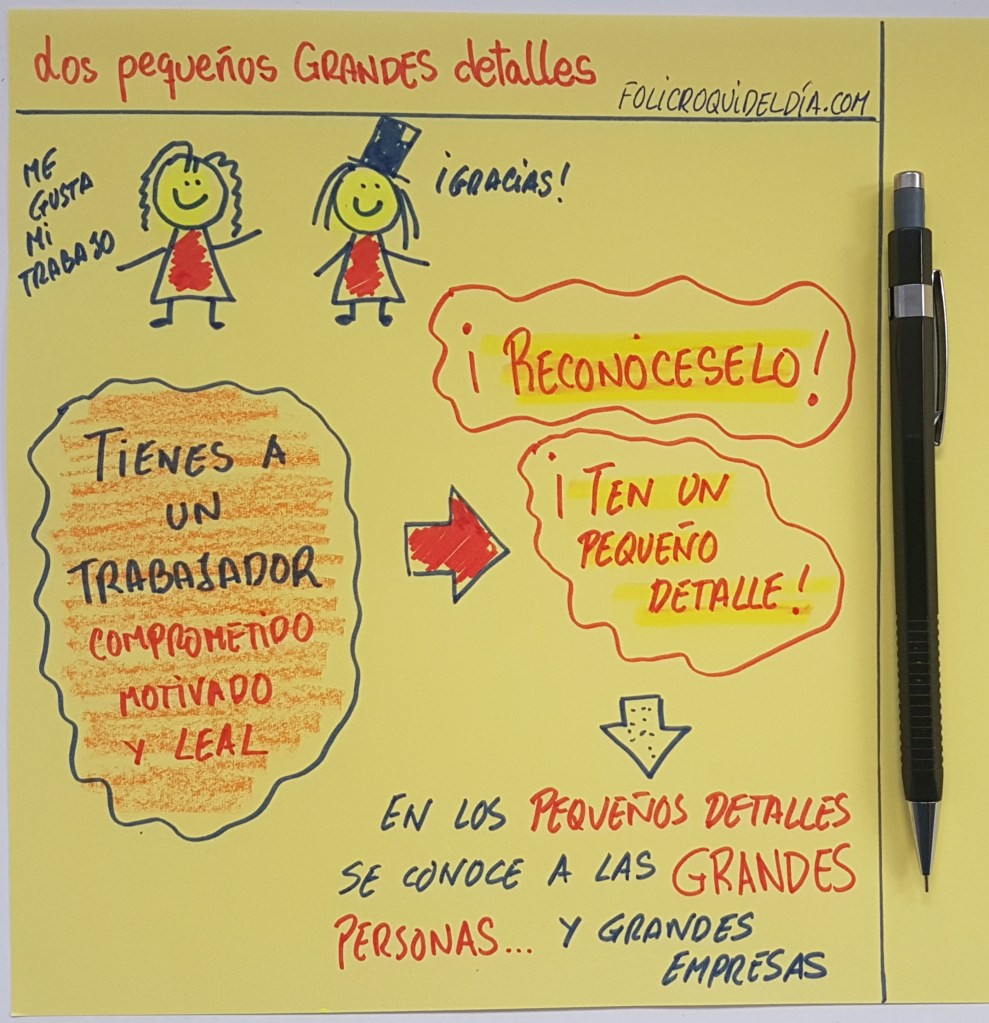 los pequeños GRANDES detalles
FOLICROQUIDELDÍA.COM
ME
GUSTA
MI
TRABAJO
¡GRACIAS!
¡RECONÓCESELO!
TIENES A
UN
TRABAJADOR
COMPROMETIDO
MOTIVADO
Y LEAL
¡TEN UN
PEQUEÑO
DETALLE!
EN LOS PEQUEÑOS DETALLES
SE CONOCE A LAS GRANDES
PERSONAS... Y GRANDES
EMPRESAS